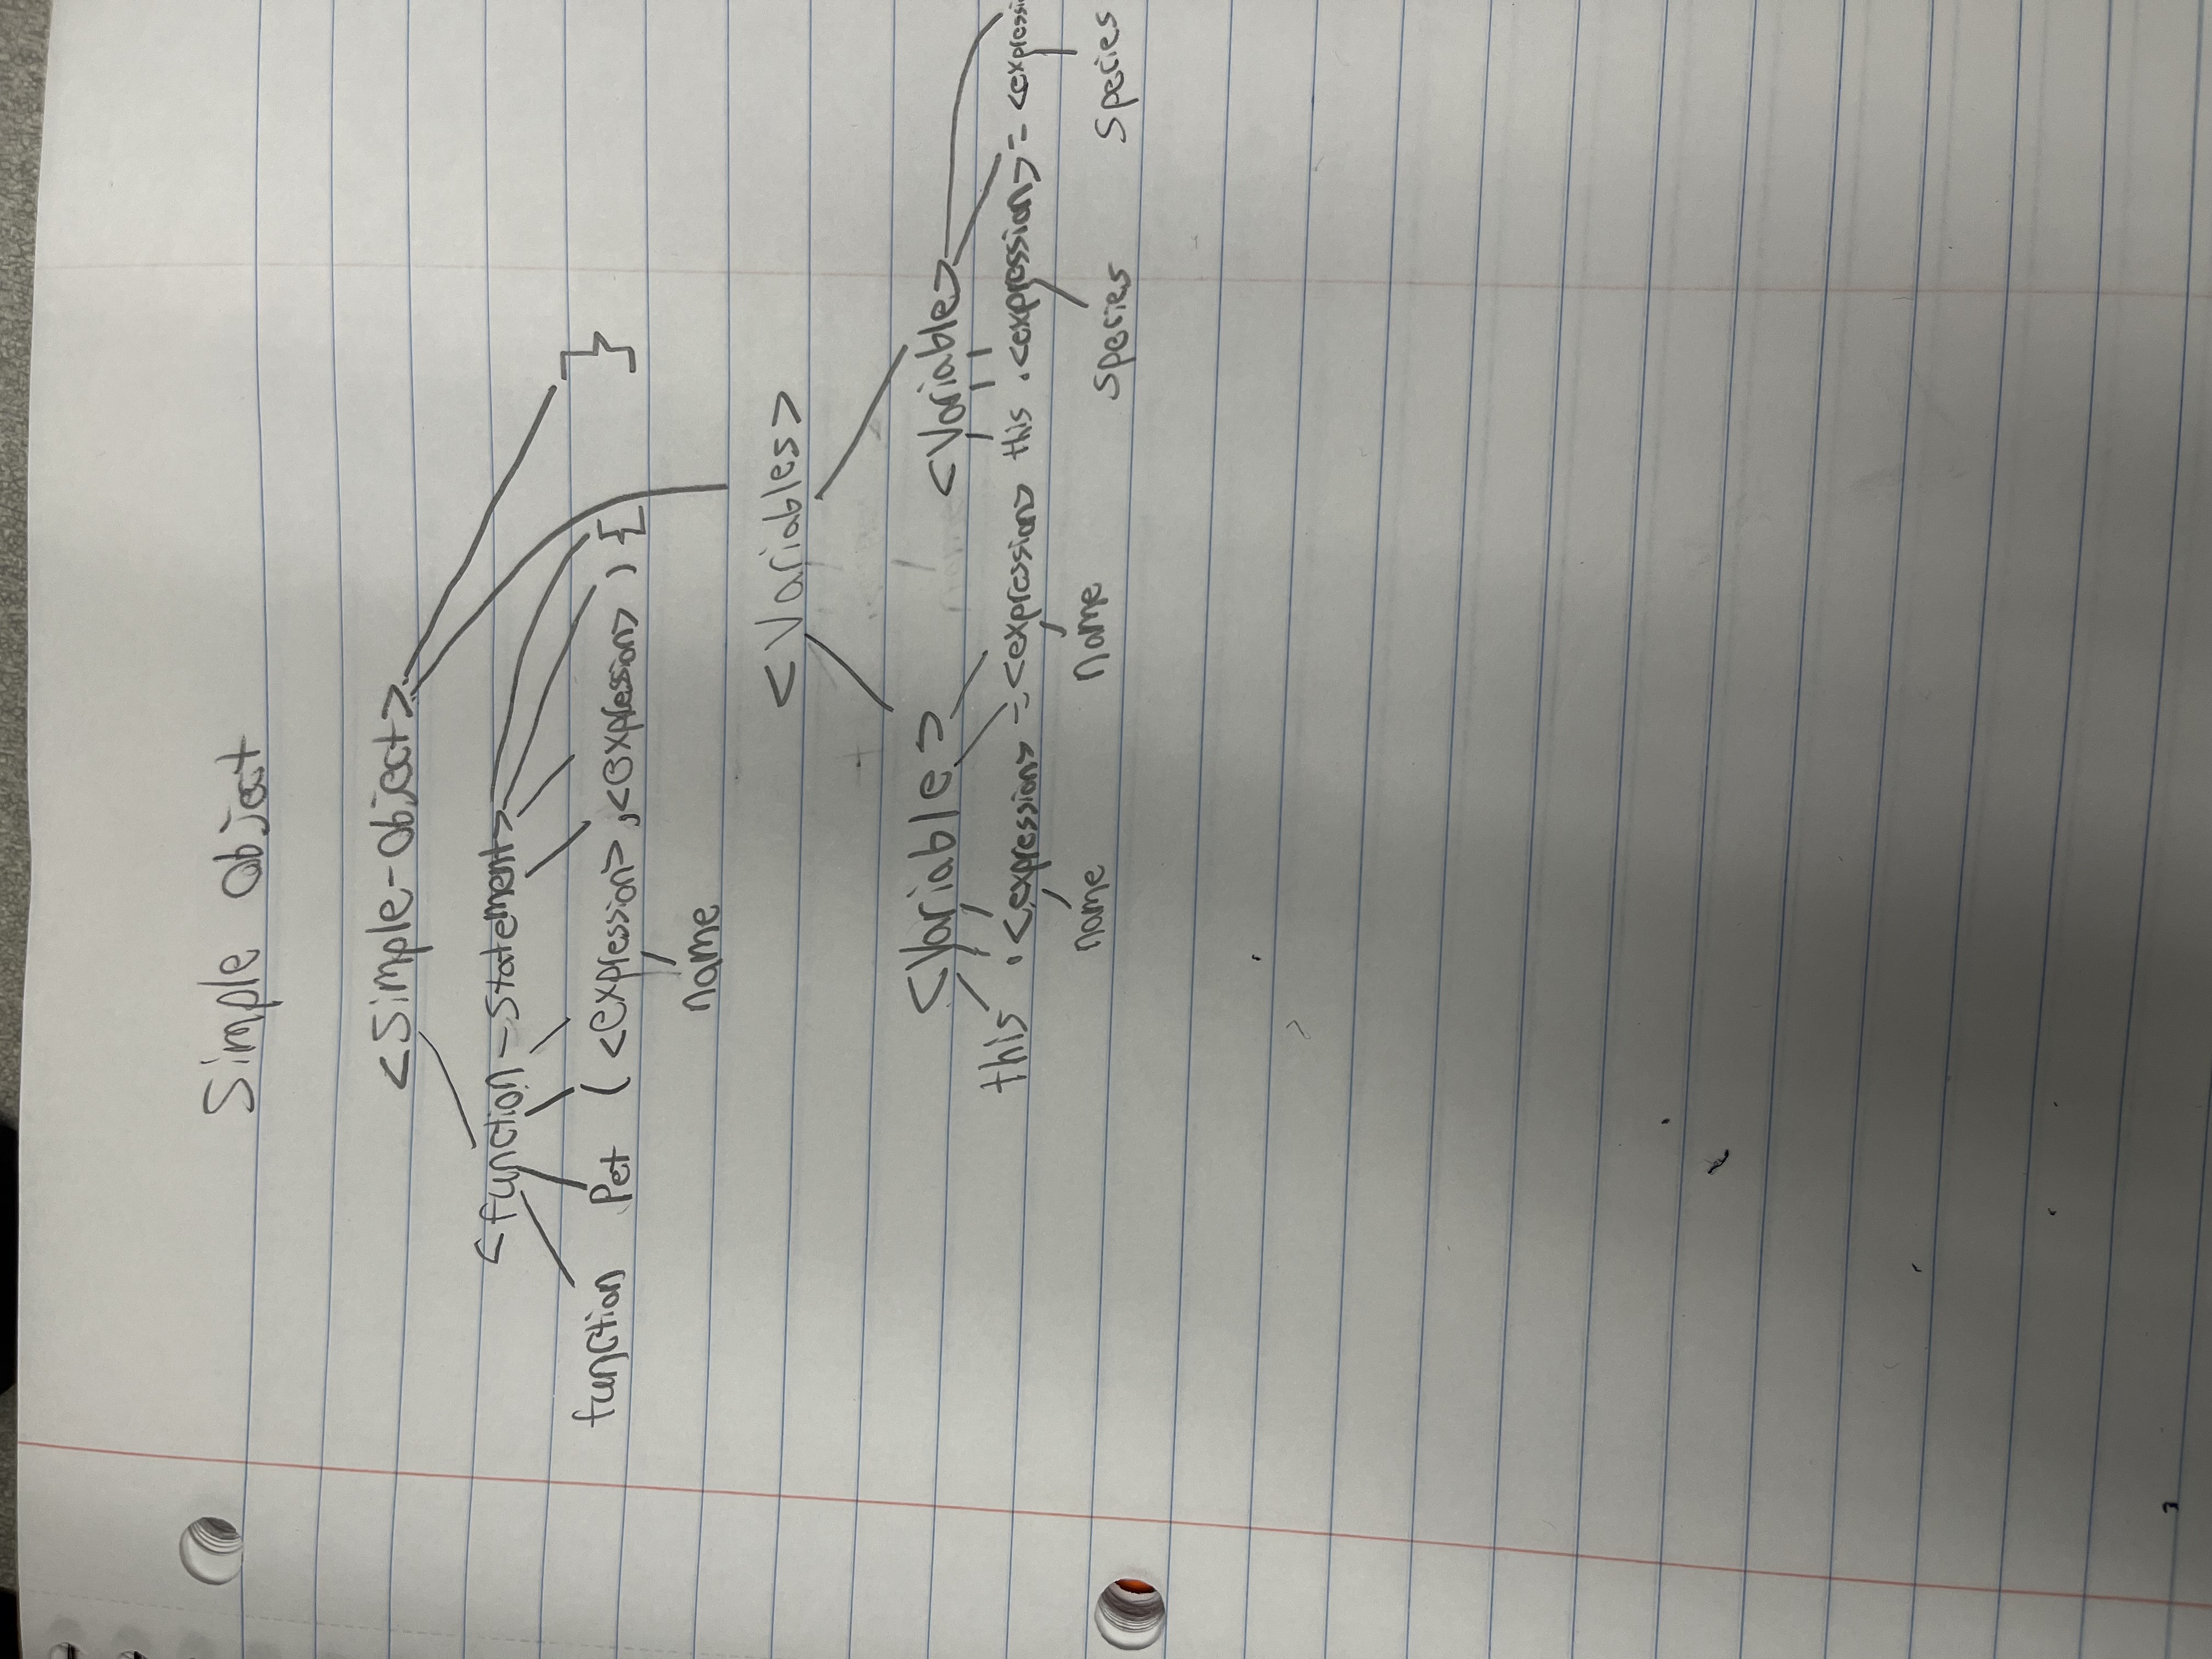 Simple Object
<Simple-Object>
<function-Statement>
function Pet ( <expression> , <expression> ) { }
name
<Variables>
<Variable> <Variable>
this . <expression> = <expression> this . <expression> = <expressi
name name species species